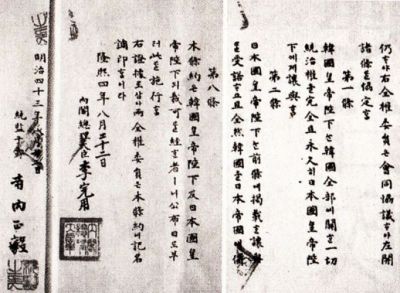 仍ᄒᆞ야右全權委員은會同協議ᄒᆞ야左開
諸條를協定홈
第一條
韓國皇帝陛下는韓國全部에關한一切
統治權을完全且永久히日本國皇帝陛
下에게讓與홈
第二條
日本國皇帝陛下는前條에揭載한讓與
를受諾하고且全然韓國을日本帝國에併
第八條
本條約은韓國皇帝陛下及日本國皇
帝陛下의裁可를經한者이니公布日로브
터此를施行홈
右證據로삼아兩全權委員은本條約에記名
調印홈이라
隆熙四年八月二十二日
內閣總理大臣李完用
明治四十三年
統監子爵寺內正毅